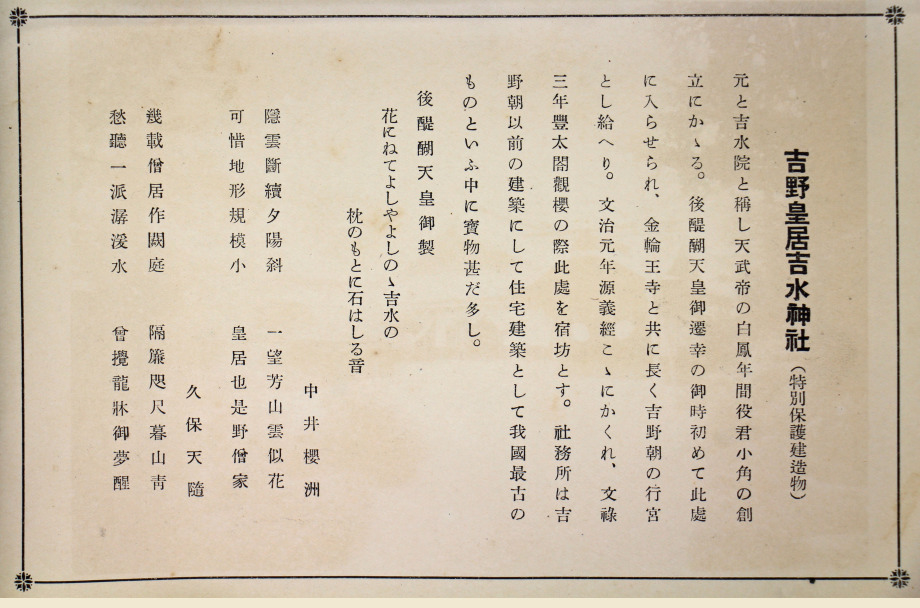 吉野皇居吉水神社（特別保護建造物）
元と吉水院と稱し天武帝の白鳳年間役君小角の創
立にかゝる。後醍醐天皇御遷幸の御時初めて此處
に入らせられ、金輪王寺と共に長く吉野朝の行宮
とし給へり。文治元年源義經こゝにかくれ、文祿
三年豐太閤觀櫻の際此處を宿坊とす。社務所は吉
野朝以前の建築にして住宅建築として我國最古の
ものといふ中に寳物甚だ多し。
後醍醐天皇御製
花にねてよしやよしのゝ吉水の
枕のもとに石はしる音
中井櫻洲
隱雲斷續夕陽斜　一望芳山雲似花
可惜地形規模小　皇居也是野僧家
久保天隨
幾載僧居作闕庭　隔簾咫尺暮山靑
愁聽一派潺湲水　曾攪龍牀御夢醒